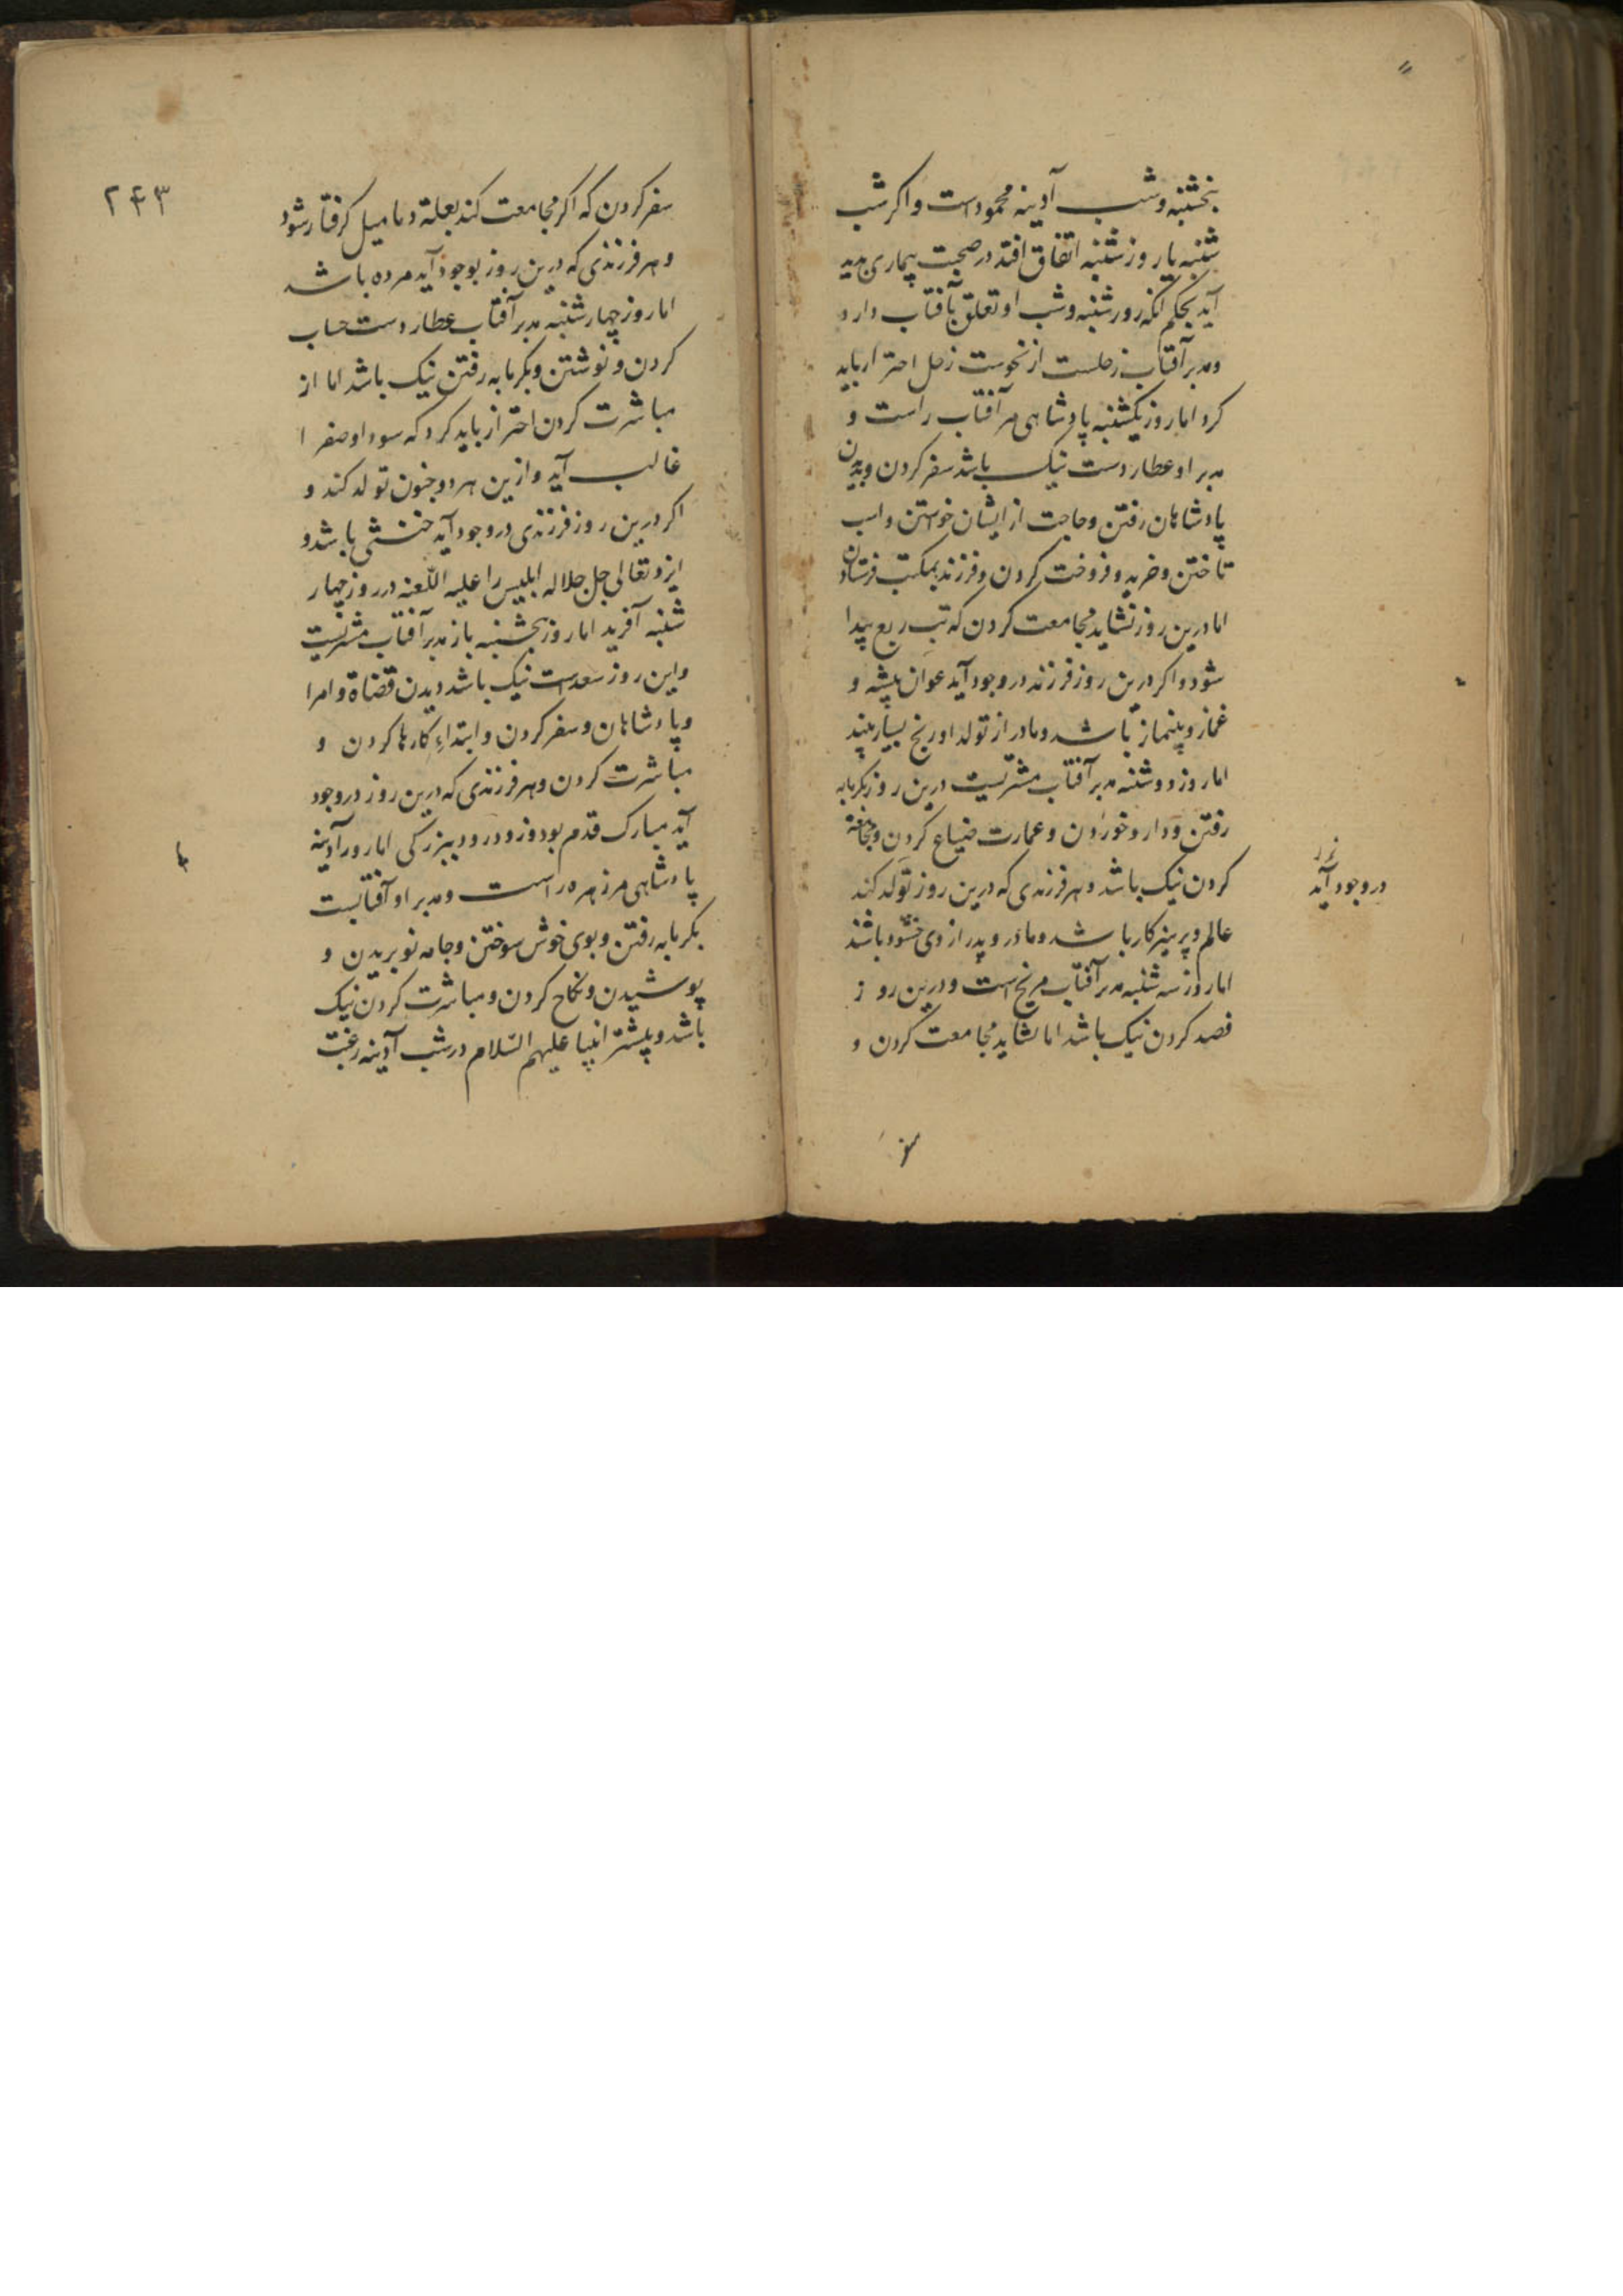 پنجشنبه و شب آدینه محمود است و اکر شب
شنبه یا روز شنبه اتفاق افتد در صحبت بیماری پدید
آید بحکم آنکه روز شنبه و شب او تعلق بآفتاب دارد
و مدبر آفتاب زحلست از نحوست زحل احتراز باید
کرد اما روز یکشنبه پادشاهی مر آفتاب راست و
مدبر او عطاردست نیک باشد سفر کردن و بدیدن
پادشاهان رفتن و حاجت از ایشان خواستن و اسب
تاختن و خرید و فروخت کردن و فرزند بمکتب فرستادن
اما درین روز نشاید مجامعت کردن که تب ربع پیدا
شود و اکر درین روز فرزند در وجود آید عوان پیشه و
غماز و بینماز باشد و مادر از تولد او رنج بسیار بیند
اما روز دوشنبه مدبر آفتاب مشتریست درین روز بکرمابه
رفتن و دارو خوردن و عمارت ضیاع کردن و مجامعة
کردن نیک باشد و هر فرزندی که درین روز تولد کند
در وجود آید
عالم و پرهیزکار باشد و مادر و پدر از وی خشنود باشند
اما روز سه شنبه مدبر آفتاب مریخ است و درین روز
فصد کردن نیک باشد اما نشاید مجامعت کردن و
سفر
۲۴۳
سفر کردن که اکر مجامعت کند بعلة دمامیل کرفتار شود
و هر فرزندی که درین روز بوجود آید مرده باشد
اما روز چهارشنبه مدبر آفتاب عطاردست حساب
کردن و نوشتن و بکرمابه رفتن نیک باشد اما از
مباشرت کردن احتراز باید کرد که سودا و صفرا
غالب آید و ازین هر دو جنون تولد کند و
اکر درین روز فرزندی در وجود آید خنثی باشد و
ایزد تعالی جل جلاله ابلیس را علیه اللّعنه در روز چهار
شنبه آفرید اما روز پنجشنبه باز مدبر آفتاب مشتریست
و این روز سعدست نیک باشد دیدن قضاة و امرا
و پادشاهان و سفر کردن و ابتداءِ کارها کردن و
مباشرت کردن و هر فرزندی که درین روز در وجود
آید مبارک قدم بود و زود در رود ببزرکی اما روز آدینه
پادشاهی مر زهره راست و مدبر او آفتابست
بکرمابه رفتن و بوی خوش سوختن و جامه نو بریدن و
پوشیدن و نکاح کردن و مباشرت کردن نیک
باشد و بیشتر انبیا علیهم السّلام در شب آدینه رغبت